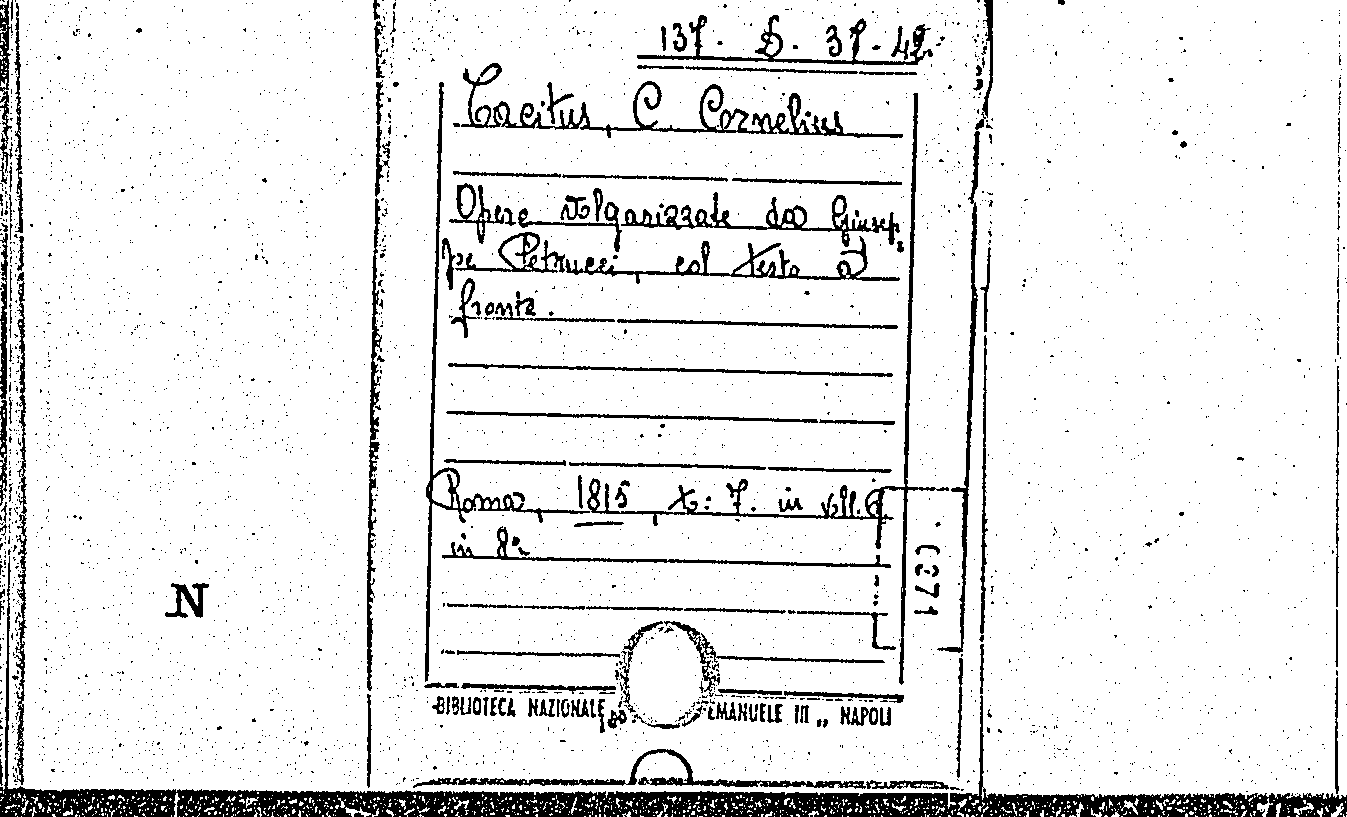 137. D. 37-42.
Tacitus, C. Cornelius
Opere volgarizzate da Giusep
pe Petrucci, col testo a
fronte.
Roma, 1815, to: 7. in voll. 6
in 8°
0271
N
BIBLIOTECA NAZIONALE EMANUELE III „ NAPOLI